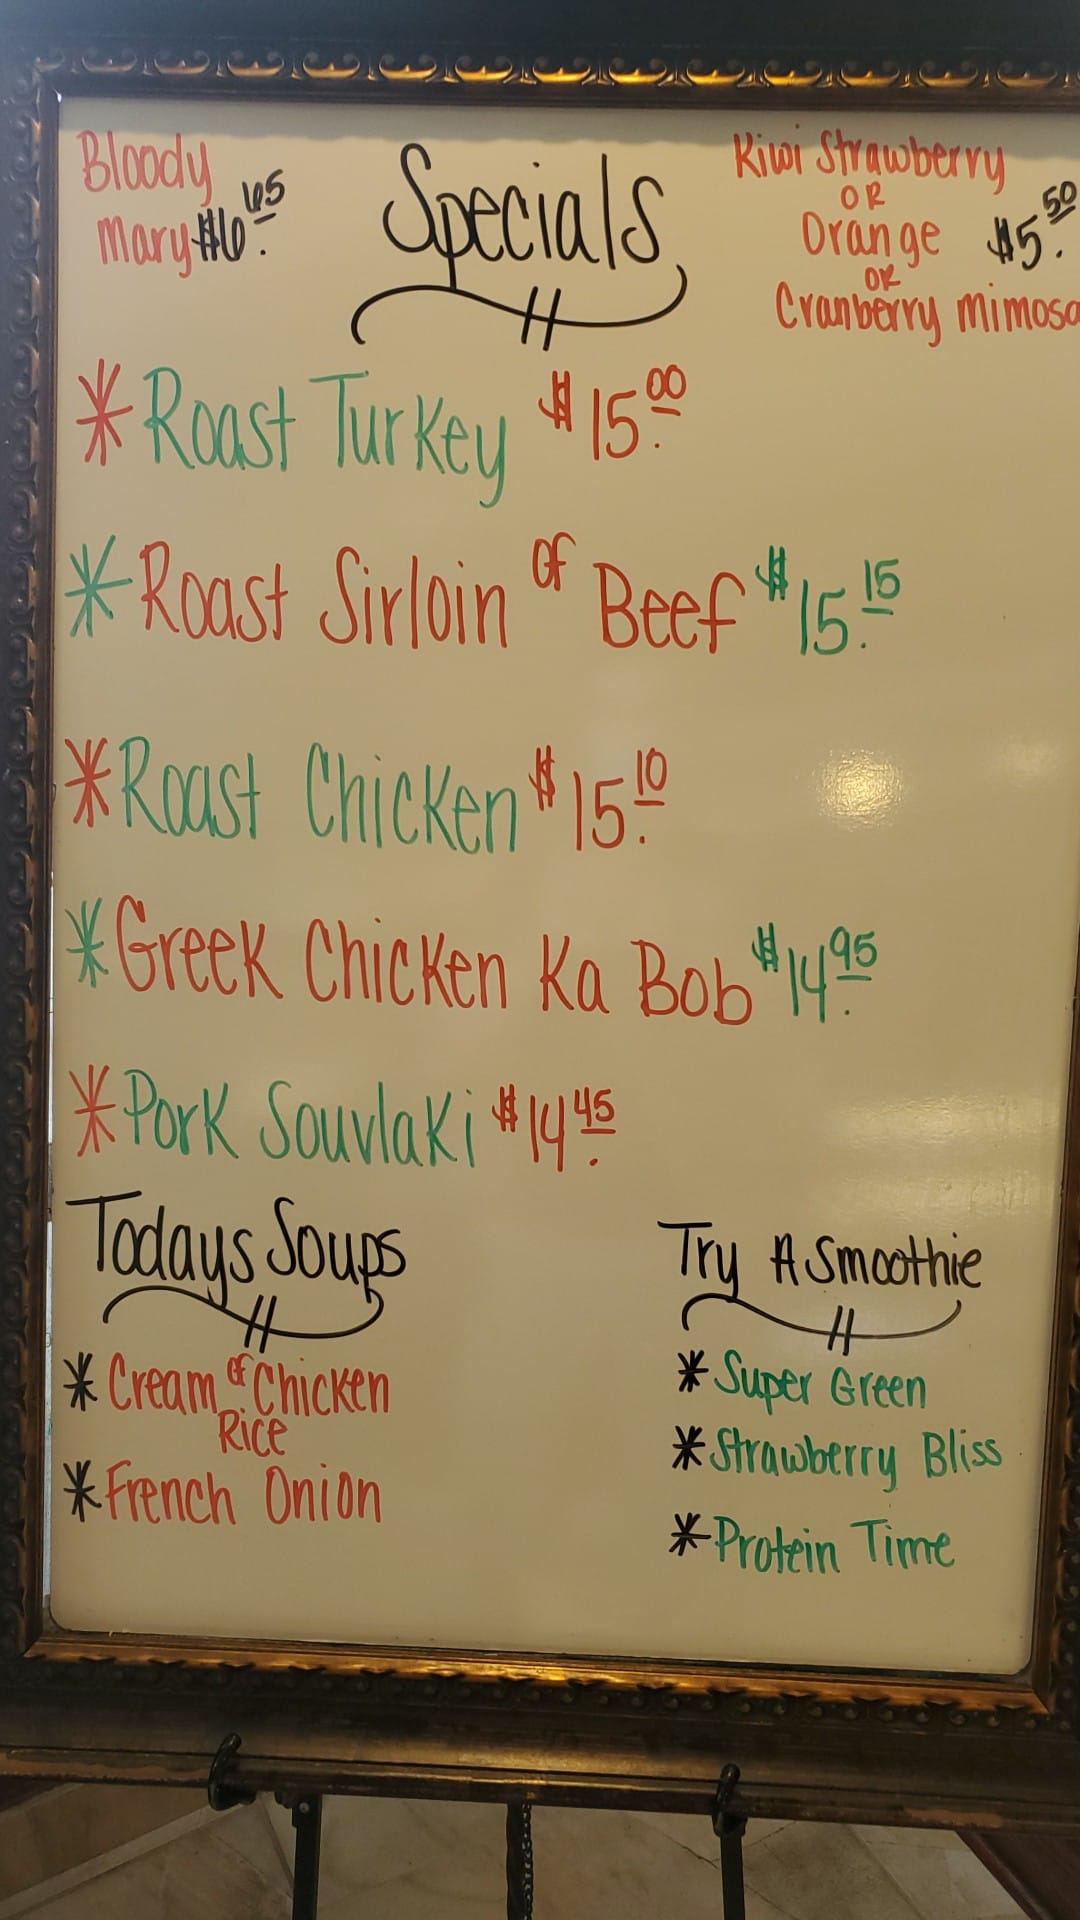 Bloody
Mary $6.65
Specials
Kiwi Strawberry
OR
Orange $5.50
OR
Cranberry Mimosa
* Roast Turkey $15.00
* Roast Sirloin of Beef $15.15
* Roast Chicken $15.10
* Greek Chicken Ka Bob $14.95
* Pork Souvlaki $14.45
Todays Soups
* Cream of Chicken
Rice
* French Onion
Try A Smoothie
* Super Green
* Strawberry Bliss
* Protein Time